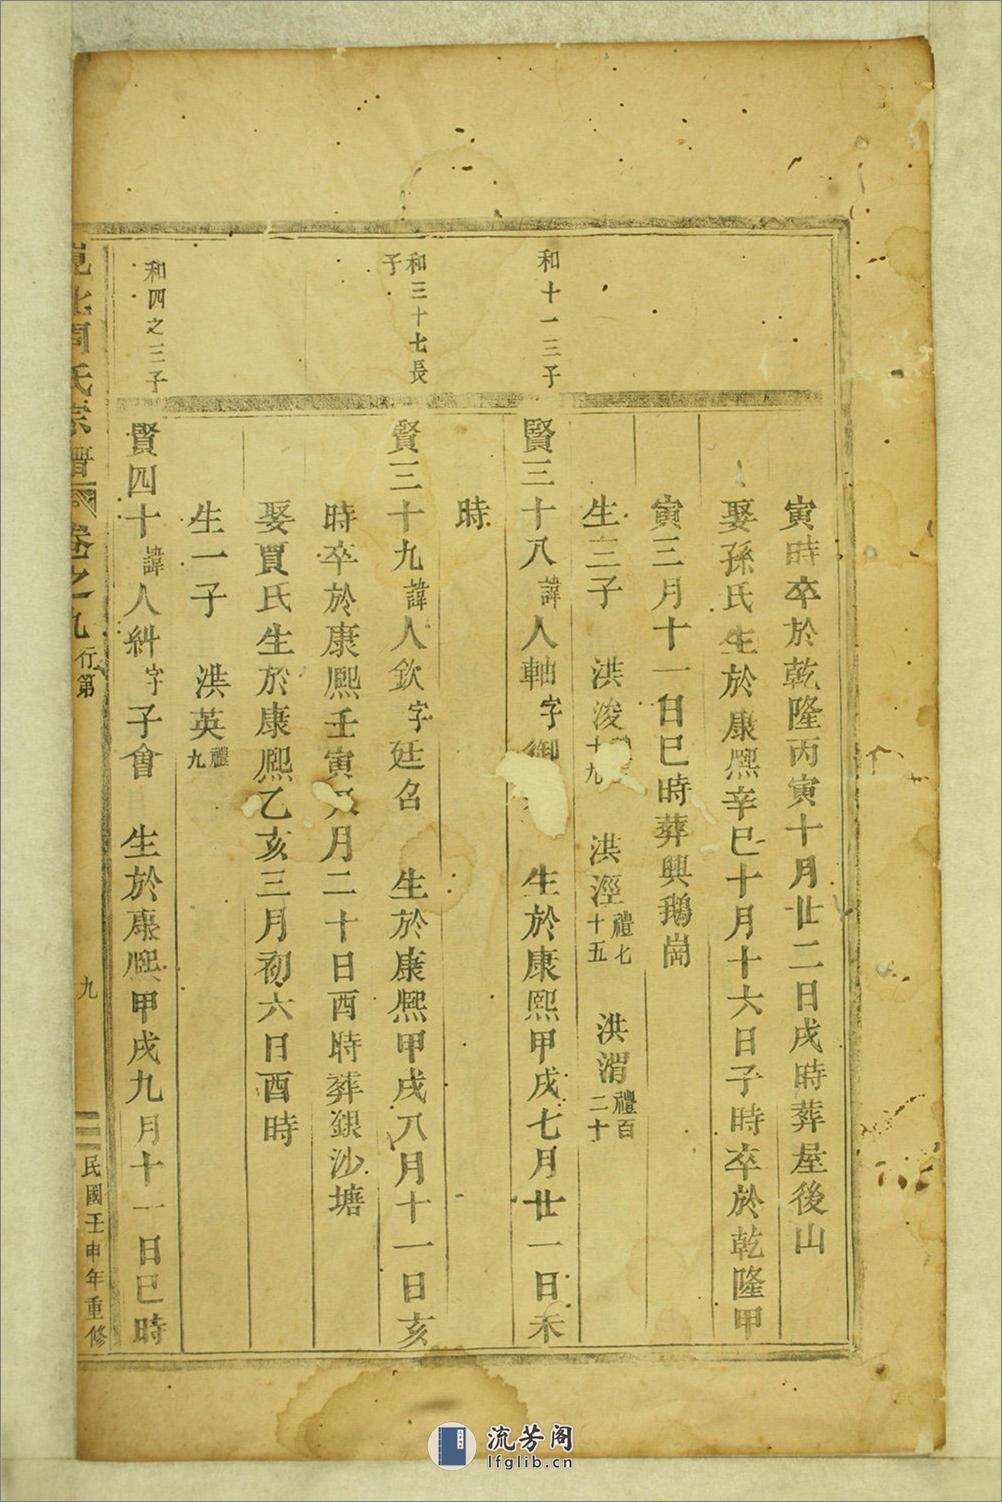 寅時卒於乾隆丙寅十月廿二日戌時葬屋後山
娶孫氏生於康熙辛巳十月十六日子時卒於乾隆甲
寅三月十一日巳時葬興鵝崗
生三子 洪浚十九 洪涇禮七十五 洪渭禮百二十
和十一三子
賢三十八諱人軸字御 生於康熙甲戌七月廿一日未
時
和三十七長子
賢三十九諱人欽字廷名 生於康熙甲戌八月十一日亥
時卒於康熙壬寅 月二十日酉時葬銀沙塘
娶賈氏生於康熙乙亥三月初六日酉時
生一子 洪英禮九
和四之三子
賢四十諱人糾字子會 生於康熙甲戌九月十一日巳時
氏宗譜 卷之九 行第 九 民國壬申年重修
流芳阁
lfglib.cn